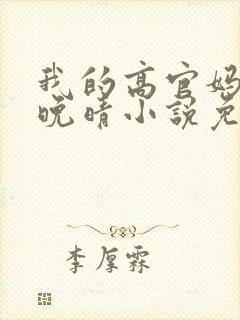 我的高官妈
晚晴小说免
李厚霖